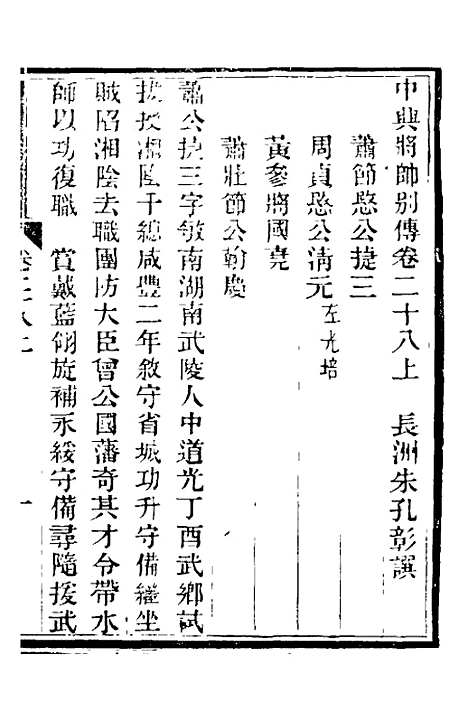 中興將帥别傳卷二十八上　長洲朱孔彰譔
蕭節愍公捷三
周貞愍公清元 左光培
黃參將國堯
蕭壯節公翰慶
蕭公捷三字敏南湖南武陵人中道光丁酉武鄉試
拔授湘陰千總咸豐二年敘守省城功升守備繼坐
賊陷湘陰去職團防大臣曾公國藩奇其才令帶水
師以功復職　賞戴藍翎旋補永綏守備尋隨援武
卷二十八上
一